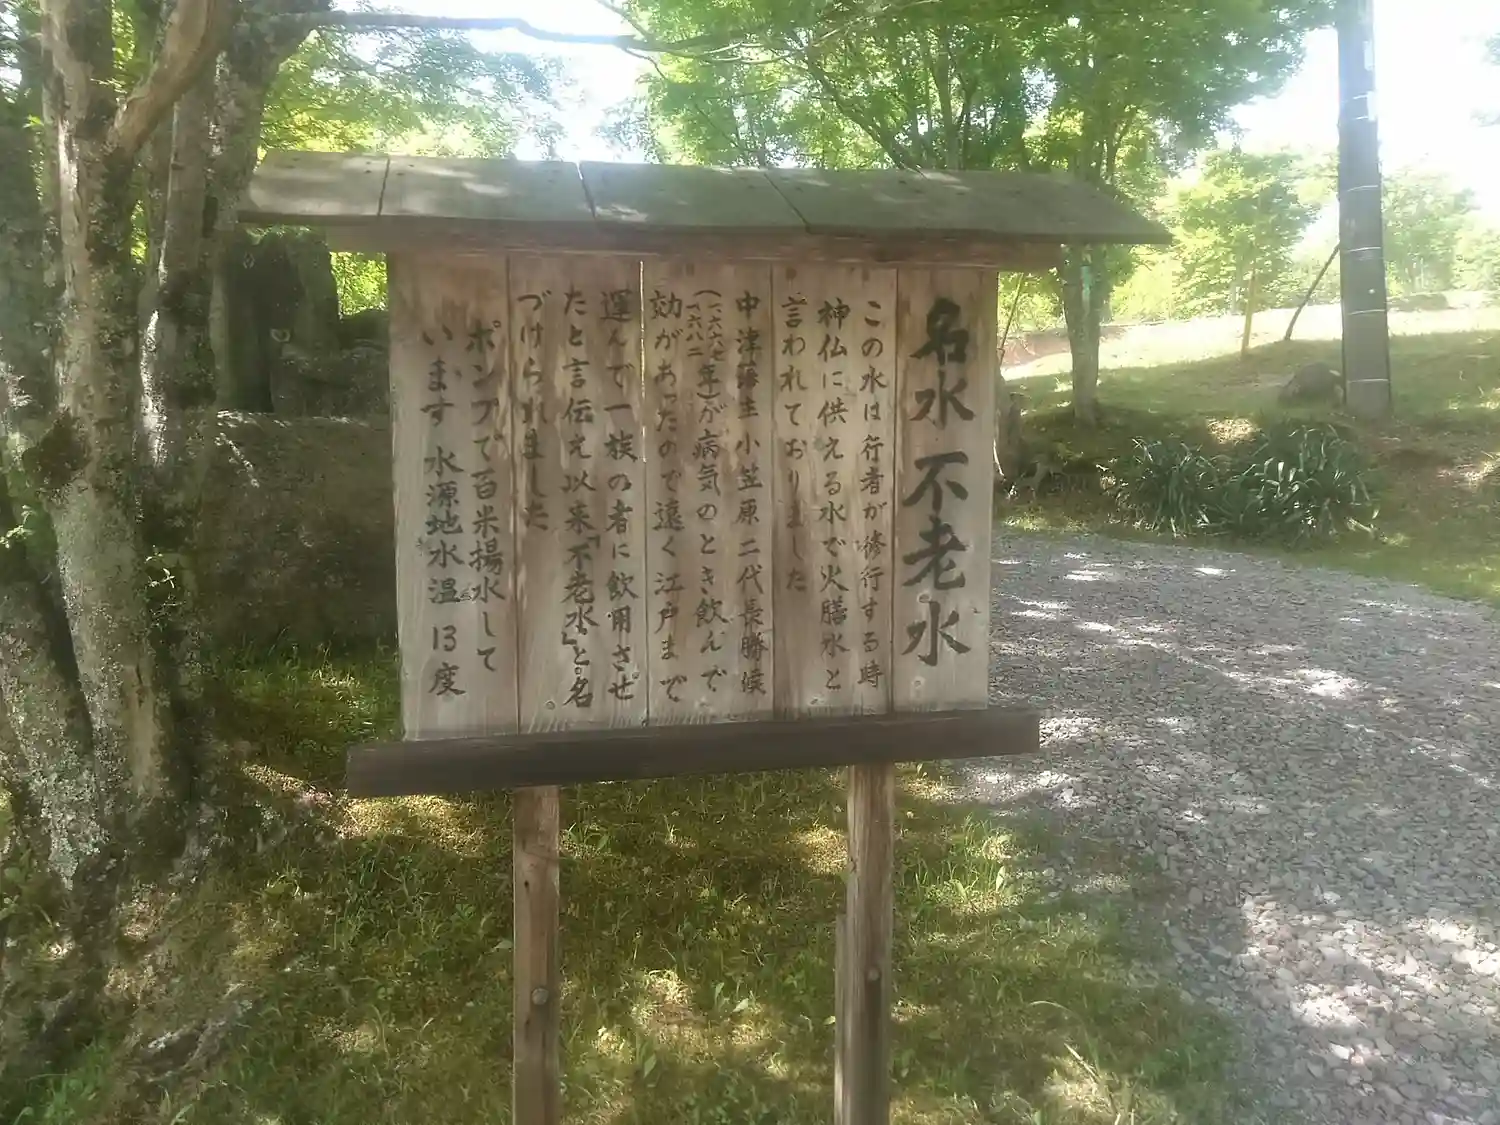 名水 不老水
この水は行者が修行する時
神仏に供える水で火膳水と
言われておりました
中津藩主小笠原二代長勝候
(一六六七年)が病気のとき飲んで
一六八二
効があったので遠く江戸まで
運んで一族の者に飲用させ
たと言伝え以来「不老水」と名
づけられました。
ポンプで百米揚水して
います 水源地水温 13度